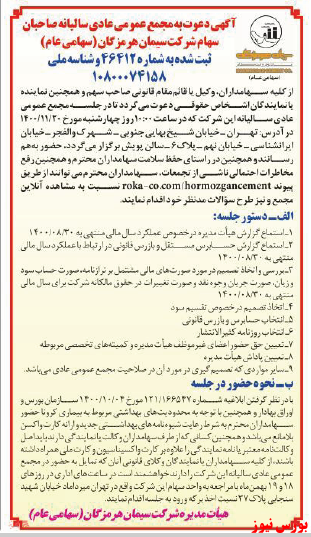 آگهی دعوت به مجمع عمومی عادی سالیانه صاحبان
سهام شرکت سیمان هرمزگان (سهامی عام)
ثبت شده به شماره ۴۶۴۱۲۰ و شناسه ملی
۱۰۸۰۰۰۷۴۱۵۸
(سهامی عام)
از کلیه سهامداران، وکیل یا قائم مقام قانونی صاحب سهم و همچنین نماینده
یا نمایندگان اشخاص حقوقی دعوت می‌گردد تا در جلسه مجمع عمومی
عادی سالیانه این شرکت که در ساعت ۱۰:۰۰ روز چهارشنبه مورخ ۱۴۰۰/۱۱/۲۰
در آدرس: تهران - خیابان شیخ بهایی جنوبی - شهرک والفجر - خیابان
ایرانشناسی - خیابان نهم - پلاک ۶ - سالن پویش برگزار می‌گردد، حضور به هم
رسانند و همچنین در راستای حفظ سلامت سهامداران محترم و همچنین رفع
مخاطرات احتمالی ناشی از تجمعات، سهامداران محترم می‌توانند از طریق
پیوند roka-co.com/hormozgancement نسبت به مشاهده آنلاین
مجمع و نیز طرح سؤالات مدنظر خود اقدام نمایند.
الف- دستور جلسه:
۱- استماع گزارش هیأت مدیره در خصوص عملکرد سال مالی منتهی به ۱۴۰۰/۰۸/۳۰
۲- استماع گزارش حسابرس مستقل و بازرس قانونی در ارتباط با عملکرد سال مالی
منتهی به ۱۴۰۰/۰۸/۳۰
۳- بررسی و اتخاذ تصمیم در مورد صورت‌های مالی مشتمل بر ترازنامه، صورت حساب سود
و زیان، صورت جریان وجوه نقد و صورت تغییرات در حقوق مالکانه شرکت برای سال مالی
منتهی به ۱۴۰۰/۰۸/۳۰
۴- اتخاذ تصمیم در خصوص تقسیم سود
۵- انتخاب حسابرس و بازرس قانونی
۶- انتخاب روزنامه کثیرالانتشار
۷- تعیین حق حضور اعضای غیرموظف هیأت مدیره و کمیته‌های تخصصی مربوطه
۸- تعیین پاداش هیأت مدیره
۹- سایر مواردی که تصمیم گیری در مورد آن در صلاحیت مجمع عمومی عادی می‌باشد.
ب- نحوه حضور در جلسه
با در نظر گرفتن ابلاغیه شماره ۱۲۱/۱۶۶۵۴۷ مورخ ۱۴۰۰/۱۰/۰۴ سازمان بورس و
اوراق بهادار و همچنین با توجه به محدودیت‌های بهداشتی مربوط به بیماری کرونا حضور
سهامداران محترم به شرط رعایت شیوه نامه‌های بهداشتی جدید و ارائه کارت واکسن
بلامانع می‌باشد و همچنین کسانی که از طرف سهامداران وکالت یا نمایندگی دارند باید اصل
وکالتنامه معتبر یا نامه نمایندگی را علاوه بر کارت واکسیناسیون و کارت ملی همراه داشته
باشند. از کلیه سهامداران یا نمایندگان و وکلای قانونی آنان که تمایل به حضور در مجمع
عمومی عادی سالیانه این شرکت را دارند خواهشمند است در ساعت‌های اداری در روزهای
۱۸ و ۱۹ بهمن ماه با مراجعه به واحد سهام این شرکت واقع در تهران میرداماد خیابان شهید
سنجابی پلاک ۲۷ نسبت اخذ برگه ورود به جلسه اقدام نمایند.
هیأت مدیره شرکت سیمان هرمزگان (سهامی عام)
بورس نیوز